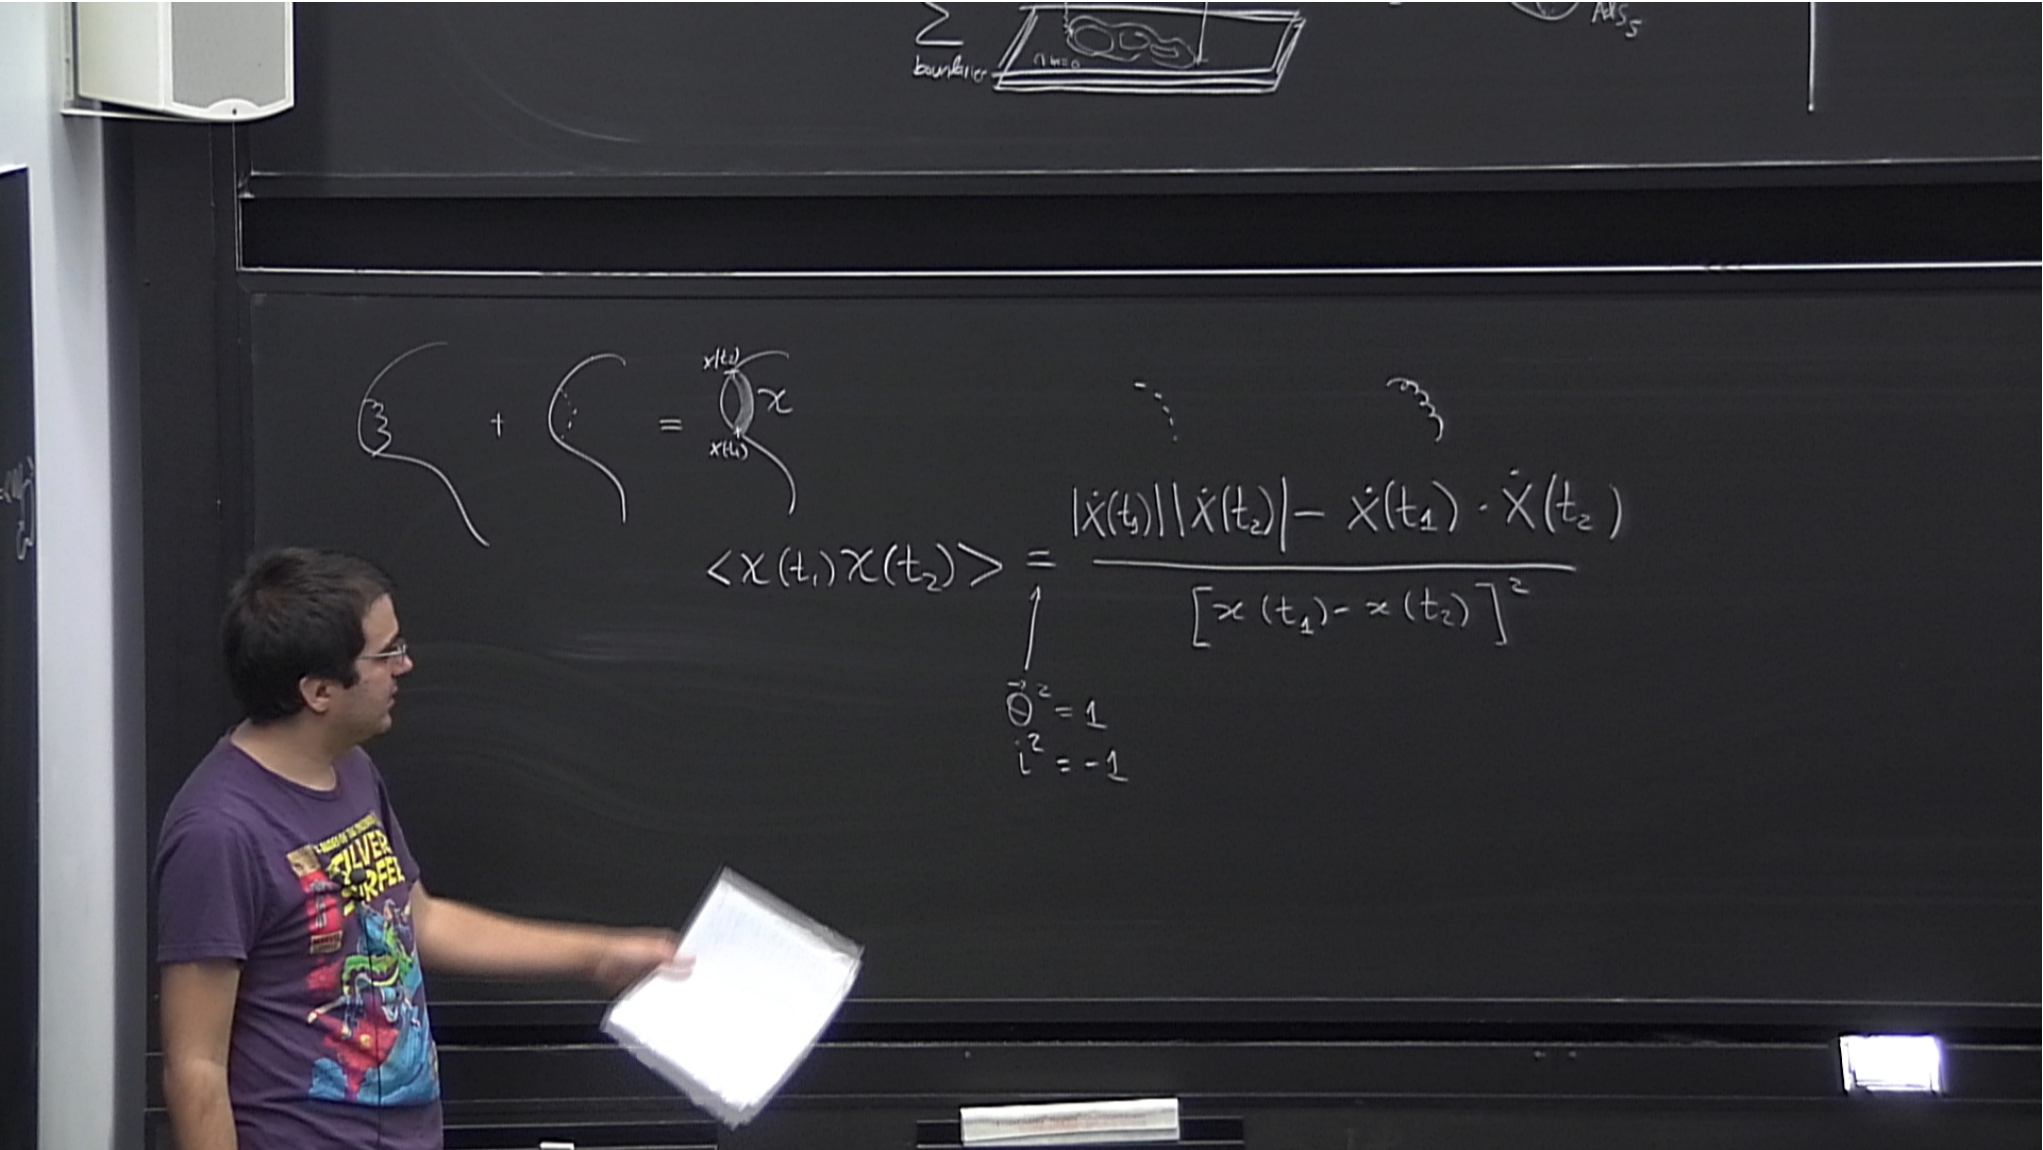 Σ
boundaries
AdS₅
x(t₂)
+ = χ
x(t₁)
<χ(t₁)χ(t₂)> = |ẋ(t₁)||ẋ(t₂)| - ẋ(t₁)·ẋ(t₂)
[x(t₁)-x(t₂)]²
θ⃗² = 1
i² = -1
SILVER
SURFER